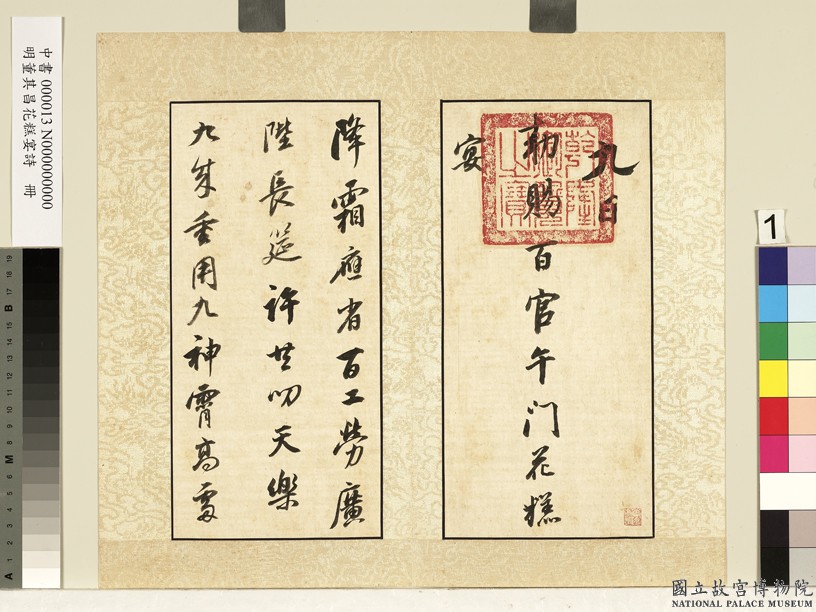 九日
勅賜百官午門花糕
宴
降霜應省百工勞廣
陛長筵許共叨天樂
九成重用九神霄高處
乾隆御覽之寶
中書 000013 N000000000
明董其昌花糕宴詩 冊
1
國立故宮博物院
NATIONAL PALACE MUSEUM